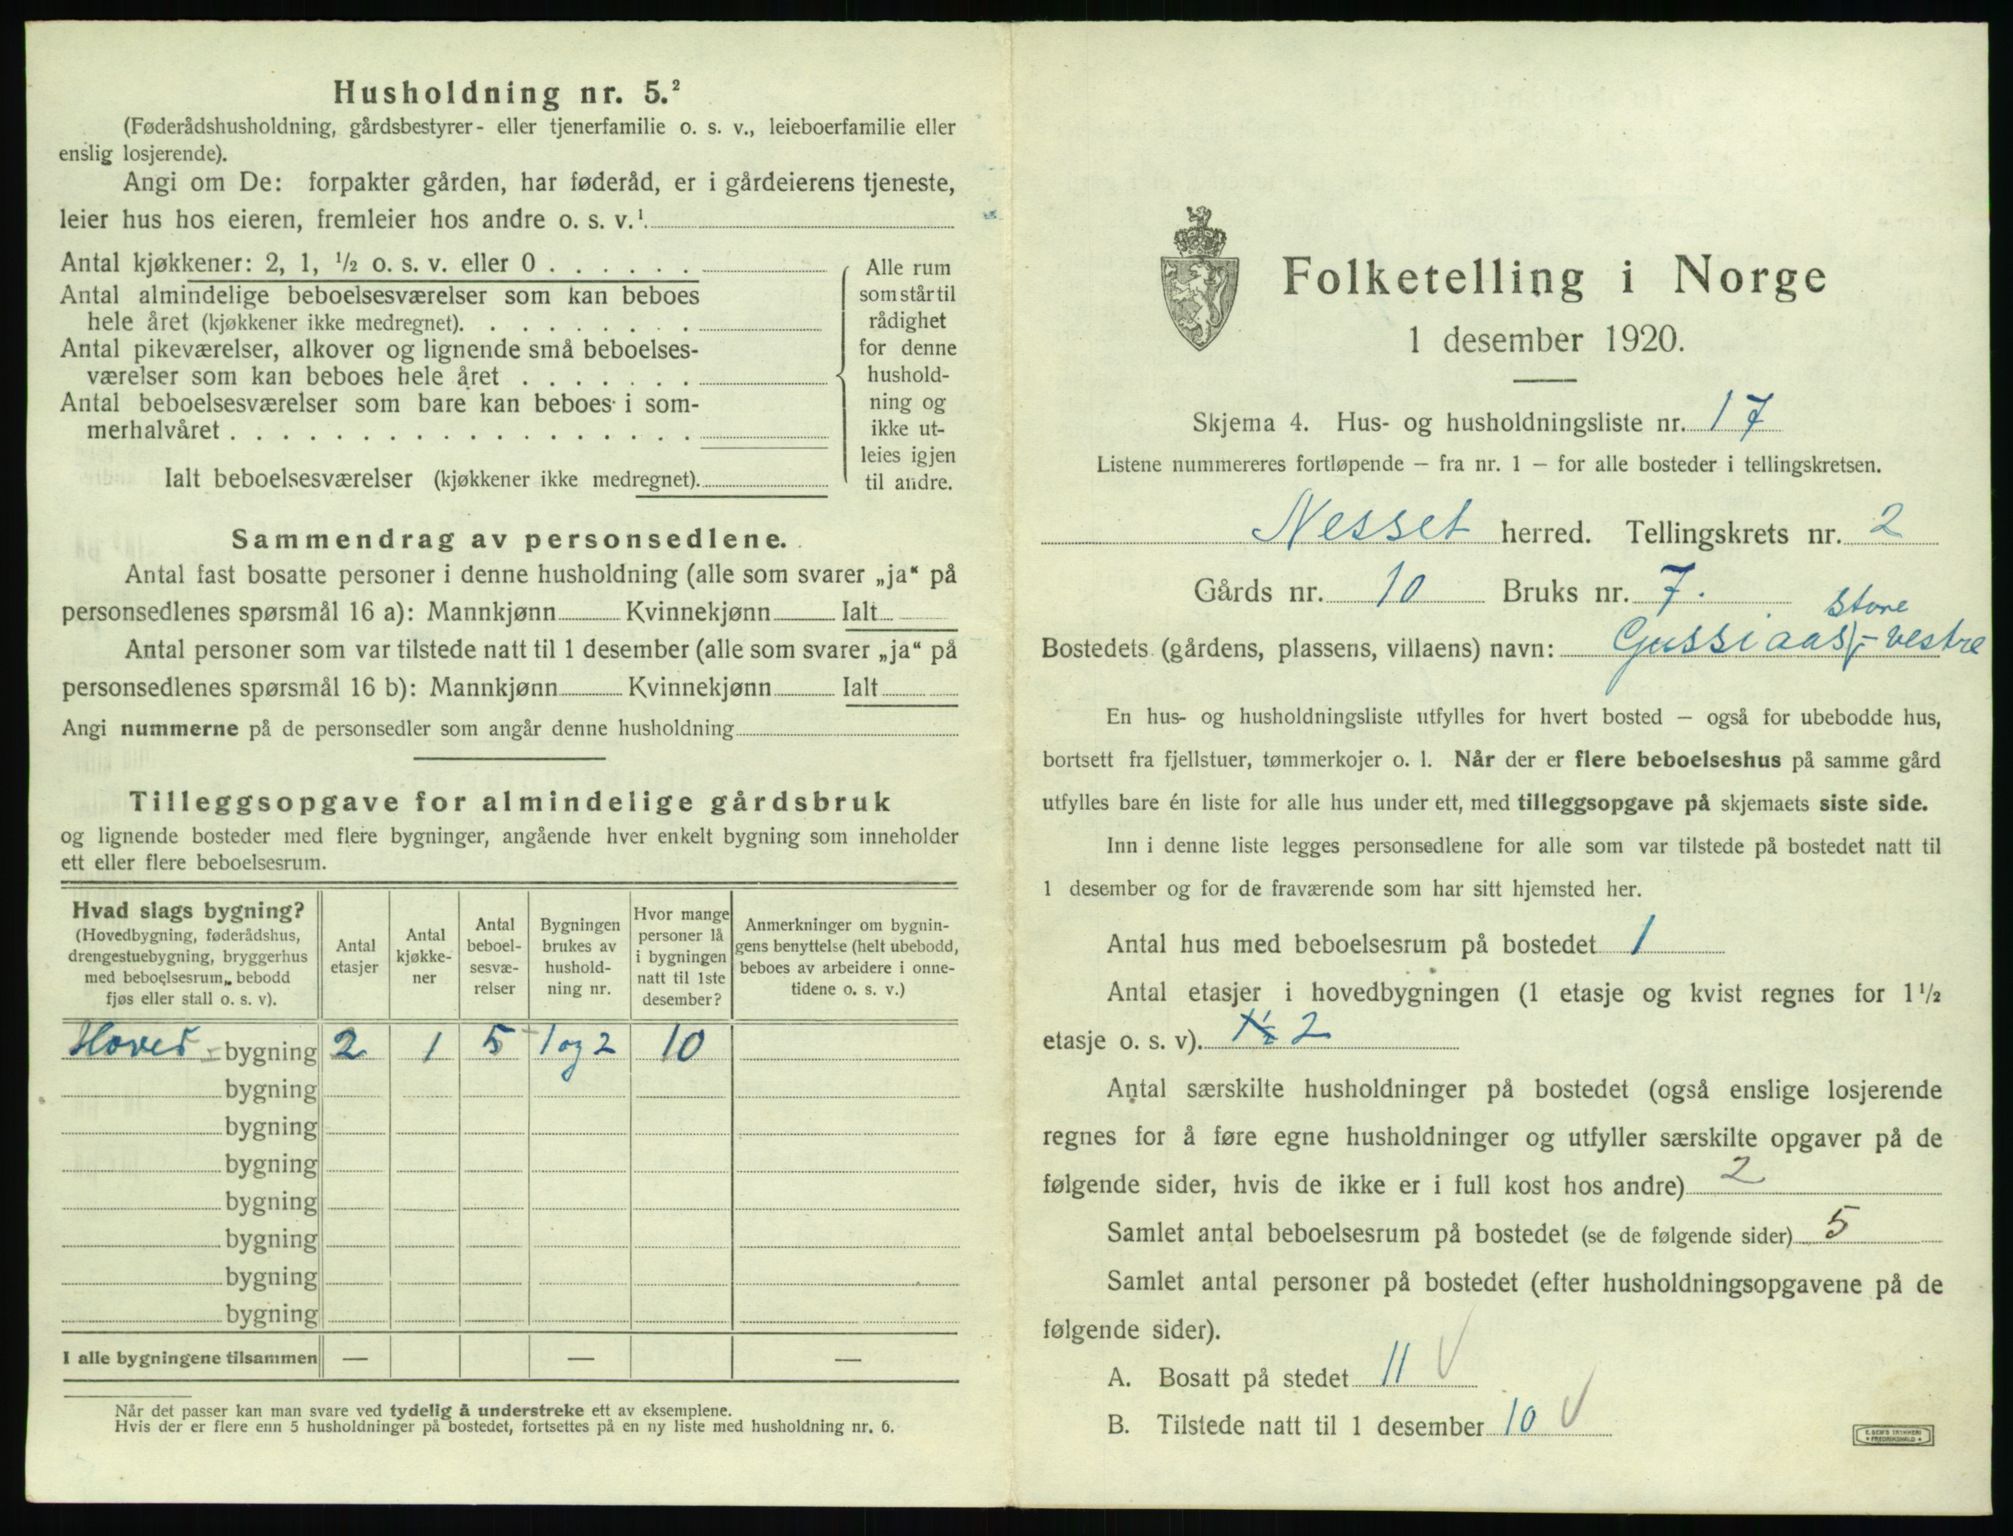 Husholdning nr. 5.²
(Føderådshusholdning, gårdsbestyrer- eller tjenerfamilie o. s. v., leieboerfamilie eller
enslig losjerende).
Angi om De: forpakter gården, har føderåd, er i gårdeierens tjeneste,
leier hus hos eieren, fremleier hos andre o. s. v.¹
Antal kjøkkener: 2, 1, ½ o. s. v. eller 0 . . . . . .
Antal almindelige beboelsesværelser som kan beboes
hele året (kjøkkener ikke medregnet). . . . . . . . .
Antal pikeværelser, alkover og lignende små beboelses-
værelser som kan beboes hele året . . . . . . .
Antal beboelsesværelser som bare kan beboes i som-
merhalvåret . . . . . . . . . . . . . . . . . .
Ialt beboelsesværelser (kjøkkener ikke medregnet).
Alle rum
som står til
rådighet
for denne
hushold-
ning og
ikke ut-
leies igjen
til andre.
Sammendrag av personsedlene.
Antal fast bosatte personer i denne husholdning (alle som svarer „ja“ på
personsedlenes spørsmål 16 a): Mannkjønn Kvinnekjønn Ialt
Antal personer som var tilstede natt til 1 desember (alle som svarer „ja“ på
personsedlenes spørsmål 16 b): Mannkjønn Kvinnekjønn Ialt
Angi nummerne på de personsedler som angår denne husholdning
Tilleggsopgave for almindelige gårdsbruk
og lignende bosteder med flere bygninger, angående hver enkelt bygning som inneholder
ett eller flere beboelsesrum.
Hvad slags bygning?
(Hovedbygning, føderådshus,
drengestuebygning, bryggerhus
med beboelsesrum, bebodd
fjøs eller stall o. s. v).
Antal
etasjer
Antal
kjøkke-
ner
Antal
beboel-
sesvæ-
relser
Bygningen
brukes av
hushold-
ning nr.
Hvor mange
personer lå
i bygningen
natt til 1ste
desember?
Anmerkninger om bygnin-
gens benyttelse (helt ubebodd,
beboes av arbeidere i onne-
tidene o. s. v.)
Hoved- bygning 2 1 5 1 og 2 10
bygning
bygning
bygning
bygning
bygning
bygning
bygning
I alle bygningene tilsammen — — —
Når det passer kan man svare ved tydelig å understreke ett av eksemplene.
Hvis der er flere enn 5 husholdninger på bostedet, fortsettes på en ny liste med husholdning nr. 6.
Folketelling i Norge
1 desember 1920.
Skjema 4. Hus- og husholdningsliste nr. 17
Listene nummereres fortløpende – fra nr. 1 – for alle bosteder i tellingskretsen.
Nesset herred. Tellingskrets nr. 2
Gårds nr. 10 Bruks nr. 7.
store
Bostedets (gårdens, plassens, villaens) navn: Gussiaas - vestre
En hus- og husholdningsliste utfylles for hvert bosted – også for ubebodde hus,
bortsett fra fjellstuer, tømmerkojer o. l. Når der er flere beboelseshus på samme gård
utfylles bare én liste for alle hus under ett, med tilleggsopgave på skjemaets siste side.
Inn i denne liste legges personsedlene for alle som var tilstede på bostedet natt til
1 desember og for de fraværende som har sitt hjemsted her.
Antal hus med beboelsesrum på bostedet 1
Antal etasjer i hovedbygningen (1 etasje og kvist regnes for 1½
etasje o. s. v). 1½ 2
Antal særskilte husholdninger på bostedet (også enslige losjerende
regnes for å føre egne husholdninger og utfyller særskilte opgaver på de
følgende sider, hvis de ikke er i full kost hos andre) 2
Samlet antal beboelsesrum på bostedet (se de følgende sider) 5
Samlet antal personer på bostedet (efter husholdningsopgavene på de
følgende sider).
A. Bosatt på stedet 11 √
B. Tilstede natt til 1 desember 10 √